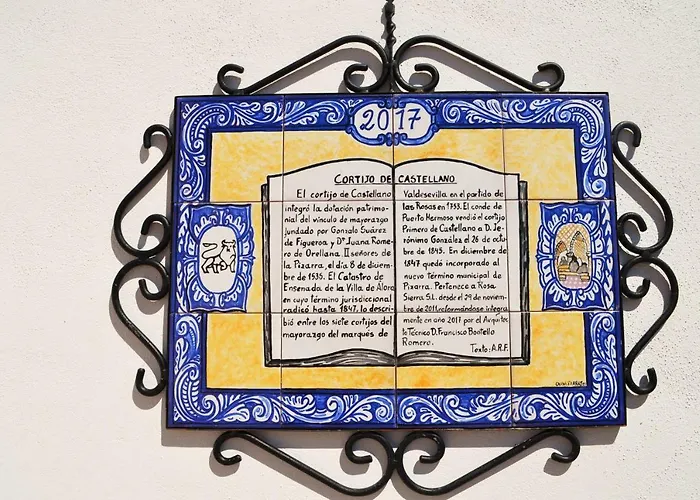 2017
CORTIJO DE CASTELLANO
El cortijo de Castellano
integró la dotación patrimo-
nial del vínculo de mayorazgo
fundado por Gonzalo Suárez
de Figueroa y Dª Juana Rome-
ro de Orellana, II señores de
la Pizarra, el día 8 de diciem-
bre de 1535. El Catastro de
Ensenada de la Villa de Álora
en cuyo término jurisdiccional
radicó hasta 1847, lo descri-
bió entre los siete cortijos del
mayorazgo del marqués de
Valdesevilla en el partido de
las Rosas en 1753. El conde de
Puerto Hermoso vendió el cortijo
Primero de Castellano a D. Je-
rónimo González el 26 de octu-
bre de 1845. En diciembre de
1847 quedó incorporado al
nuevo término municipal de
Pizarra. Pertenece a Rosa
Sierra S.L. desde el 29 de noviem-
bre de 2011, reformándose íntegra
mente en año 2017 por el Arquitec
to Técnico D. Francisco Bootello
Romero.
Texto: A.R.F.